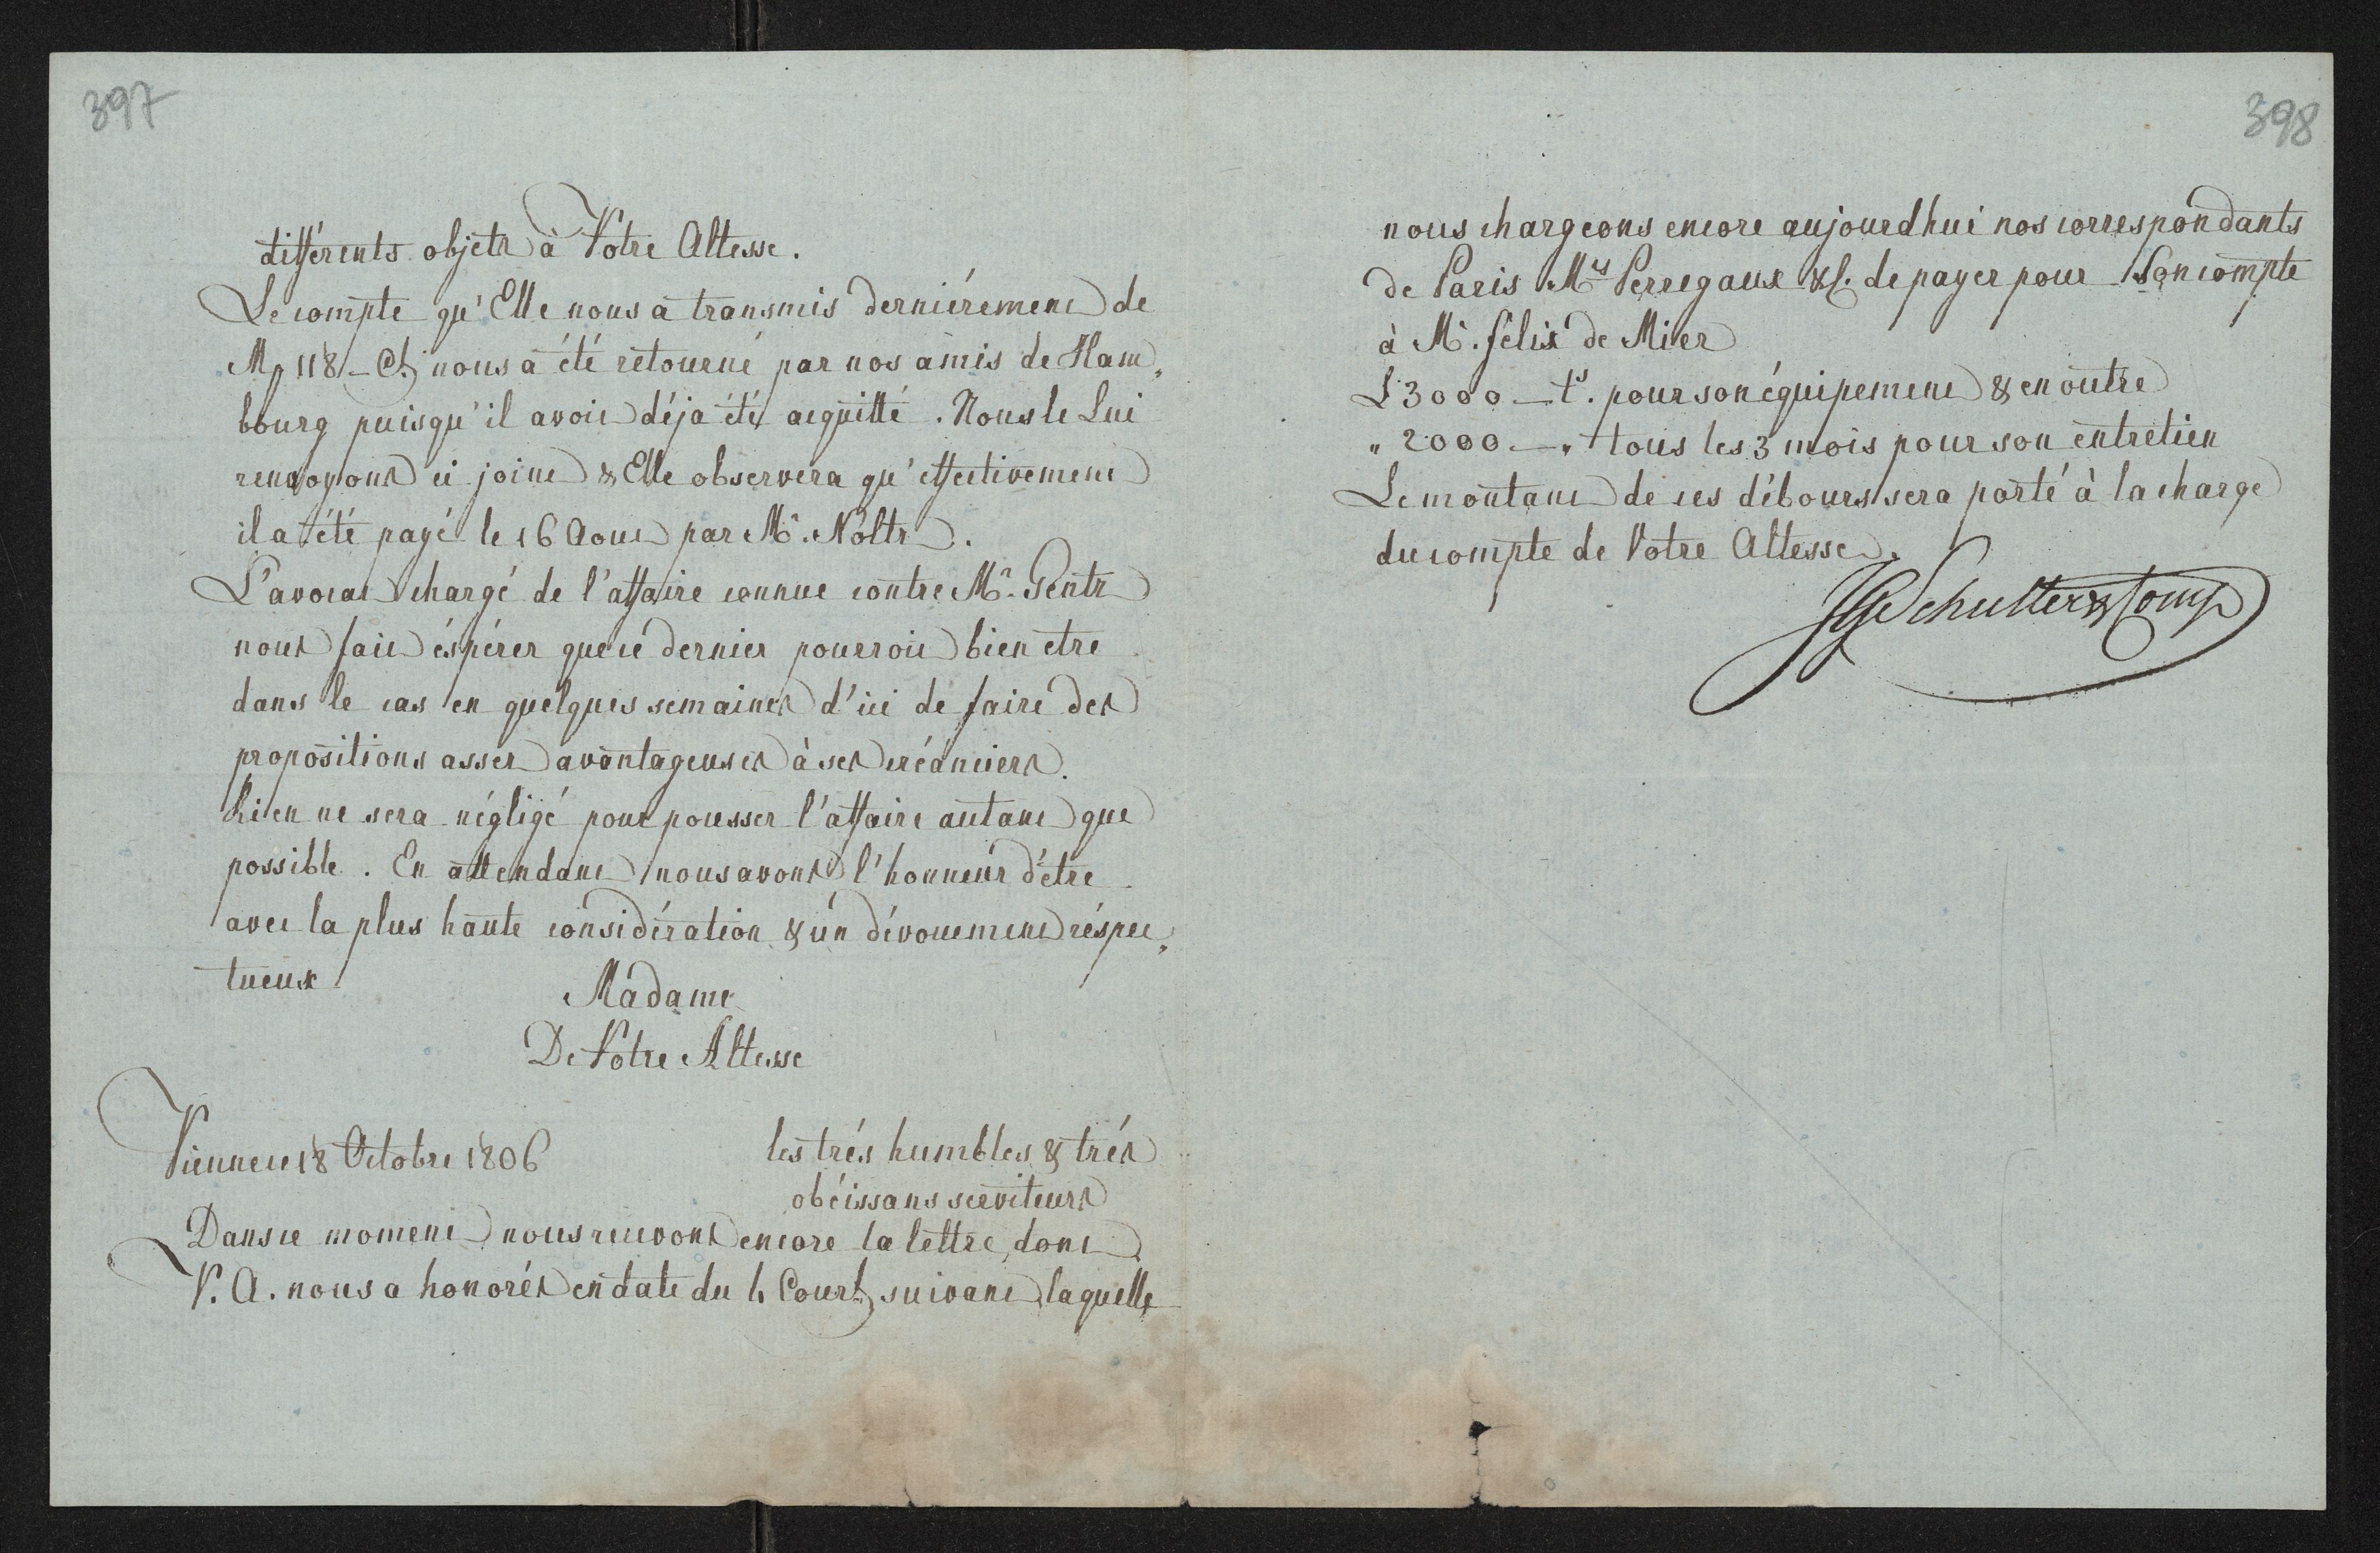 397
différents objets à Votre Altesse.
Le compte qu'Elle nous a transmis derniérement de
M₰ 118 - Ct. nous a été retourné par nos amis de Ham„
bourg puisqu'il avoit déja été acquitté. Nous le Lui
renvoyons ci joint & Elle observera qu'effectivement
il a été payé le 16 Aout par Mr. Nolts.
L'avocat chargé de l'affaire connue contre Mr. Gentz
nous fait éspérer que ce dernier pourroit bien etre
dans le cas en quelques semaines d'ici de faire des
propositions assez avantageuses à ses créanciers.
Rien ne sera négligé pour pousser l'affaire autant que
possible. En attendant nous avons l'honneur d'étre
avec la plus haute considération & un dévouement réspec„
tueux
Madame
De Votre Altesse
Vienne ce 18 Octobre 1806
les trés humbles & trés
obéissans serviteurs
Dans ce moment nous recevons encore la lettre, dont
V. A. nous a honorés en date du 4 Court suivant laquelle
398
nous chargeons encore aujourdhui nos correspondants
de Paris Mrs Perregaux & C. de payer pour Son compte
à Mr. félix de Mier
L 3000 — ts. pour son équipement & en outre
„ 2000 — „ tous les 3 mois pour son entretien
Le montant de ces débours sera porté à la charge
du compte de Votre Altesse.
JG Schuller & Comp